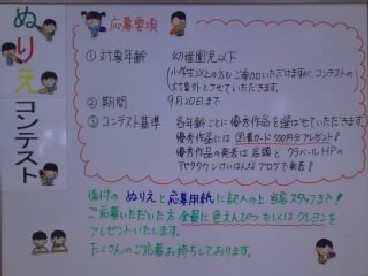 ぬりえ
コンテスト
応募要項
① 対象年齢 幼稚園児以下
(小学生以上の方もご参加いただけますが、コンテストの
対象外とさせていただきます。)
② 期間 9月20日まで
③ コンテスト基準 各年齢ごとに優秀作品を選ばせていただきます。
優秀作品には 図書カード500円分プレゼント!
優秀作品の発表は店頭と クラベールHPの
ブログで発表!
備付の ぬりえと応募用紙に記入の上 当店スタッフまで!
ご応募いただいた方 全員に色えんぴつ もしくは クレヨンを
プレゼントいたします。
たくさんのご応募お待ちしております。